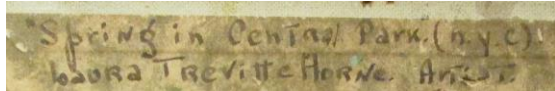 "Spring in Central Park. (n.y.c).
Laura Trevitte Horne. Artist.